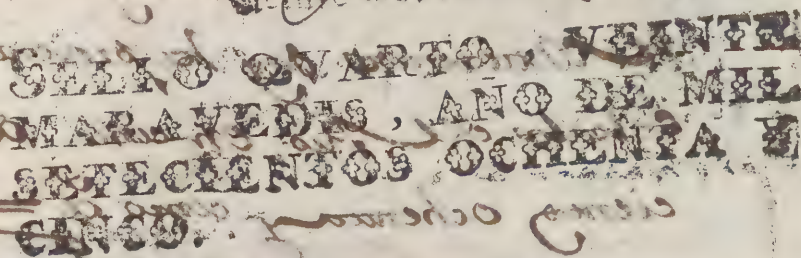 SELLO QVARTO, VEINTE
MARAVEDIS, AÑO DE MIL
SETECIENTOS OCHENTA E
CINCO.